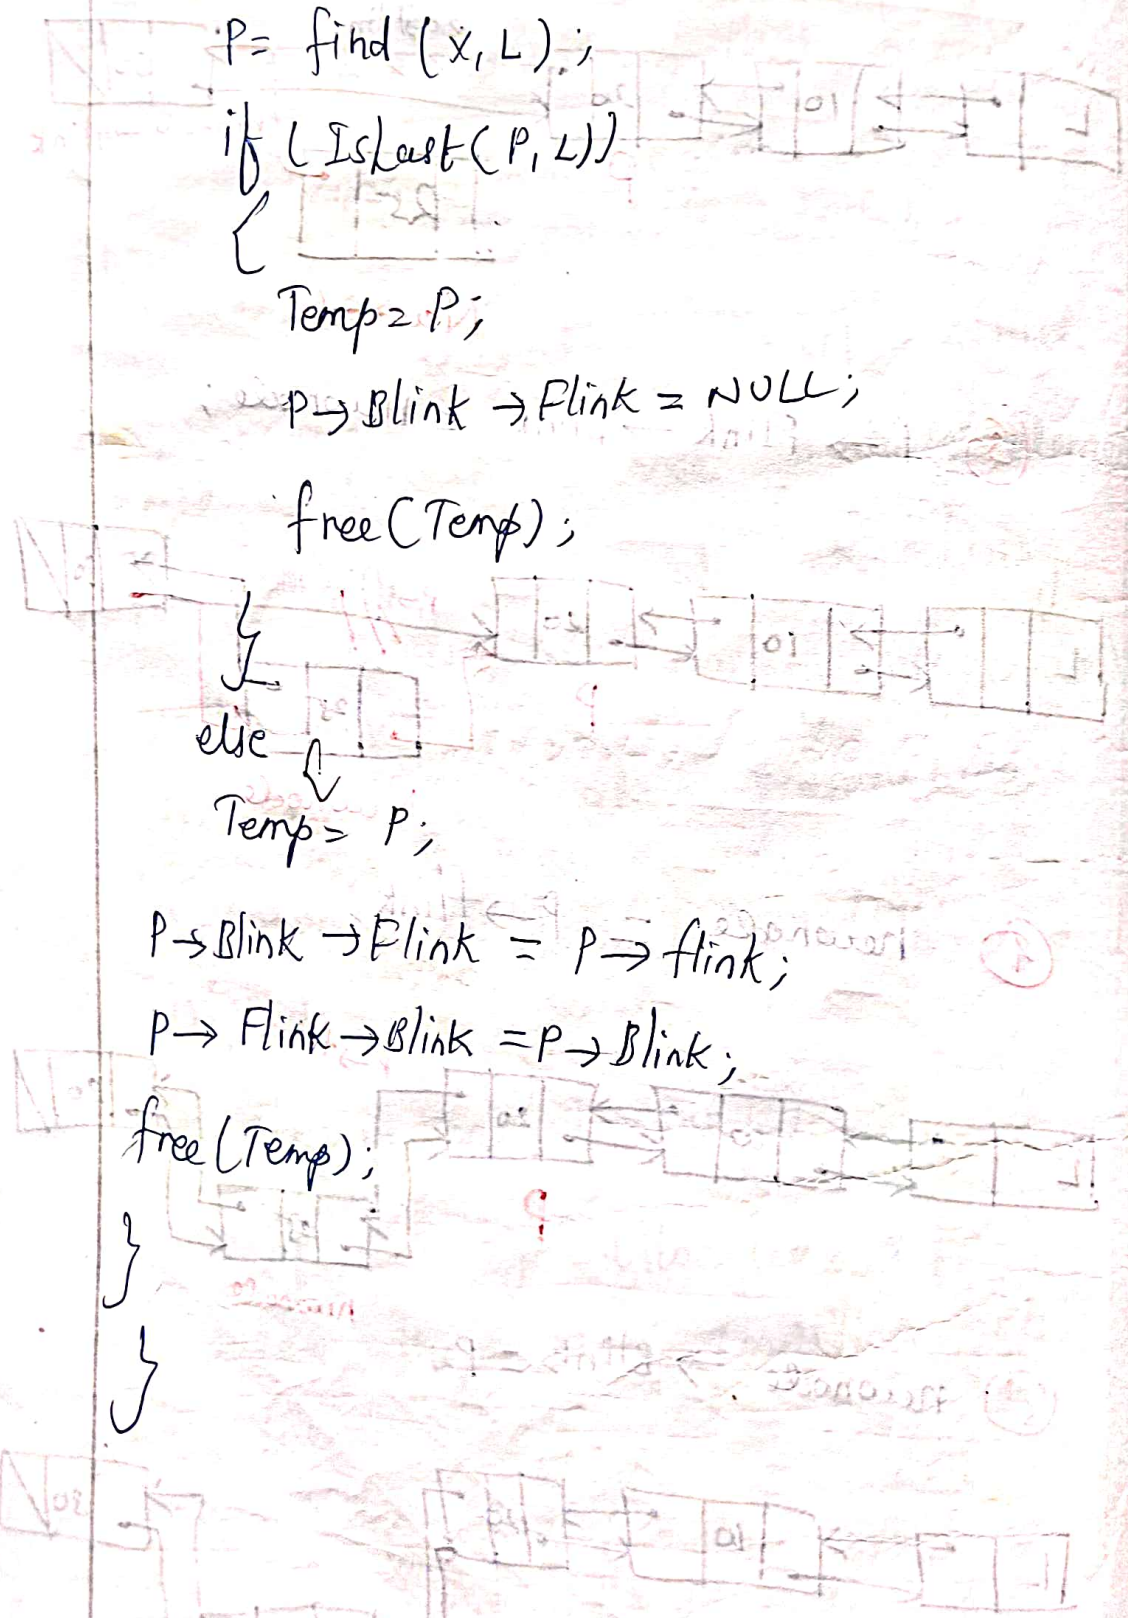 P= find (x, L);
if (IsLast(P, L))
{
Temp = P;
P→Blink→Flink = NULL;
free(Temp);
}
else {
Temp = P;
P→Blink→Flink = P→flink;
P→Flink→Blink = P→Blink;
free(Temp);
}
}